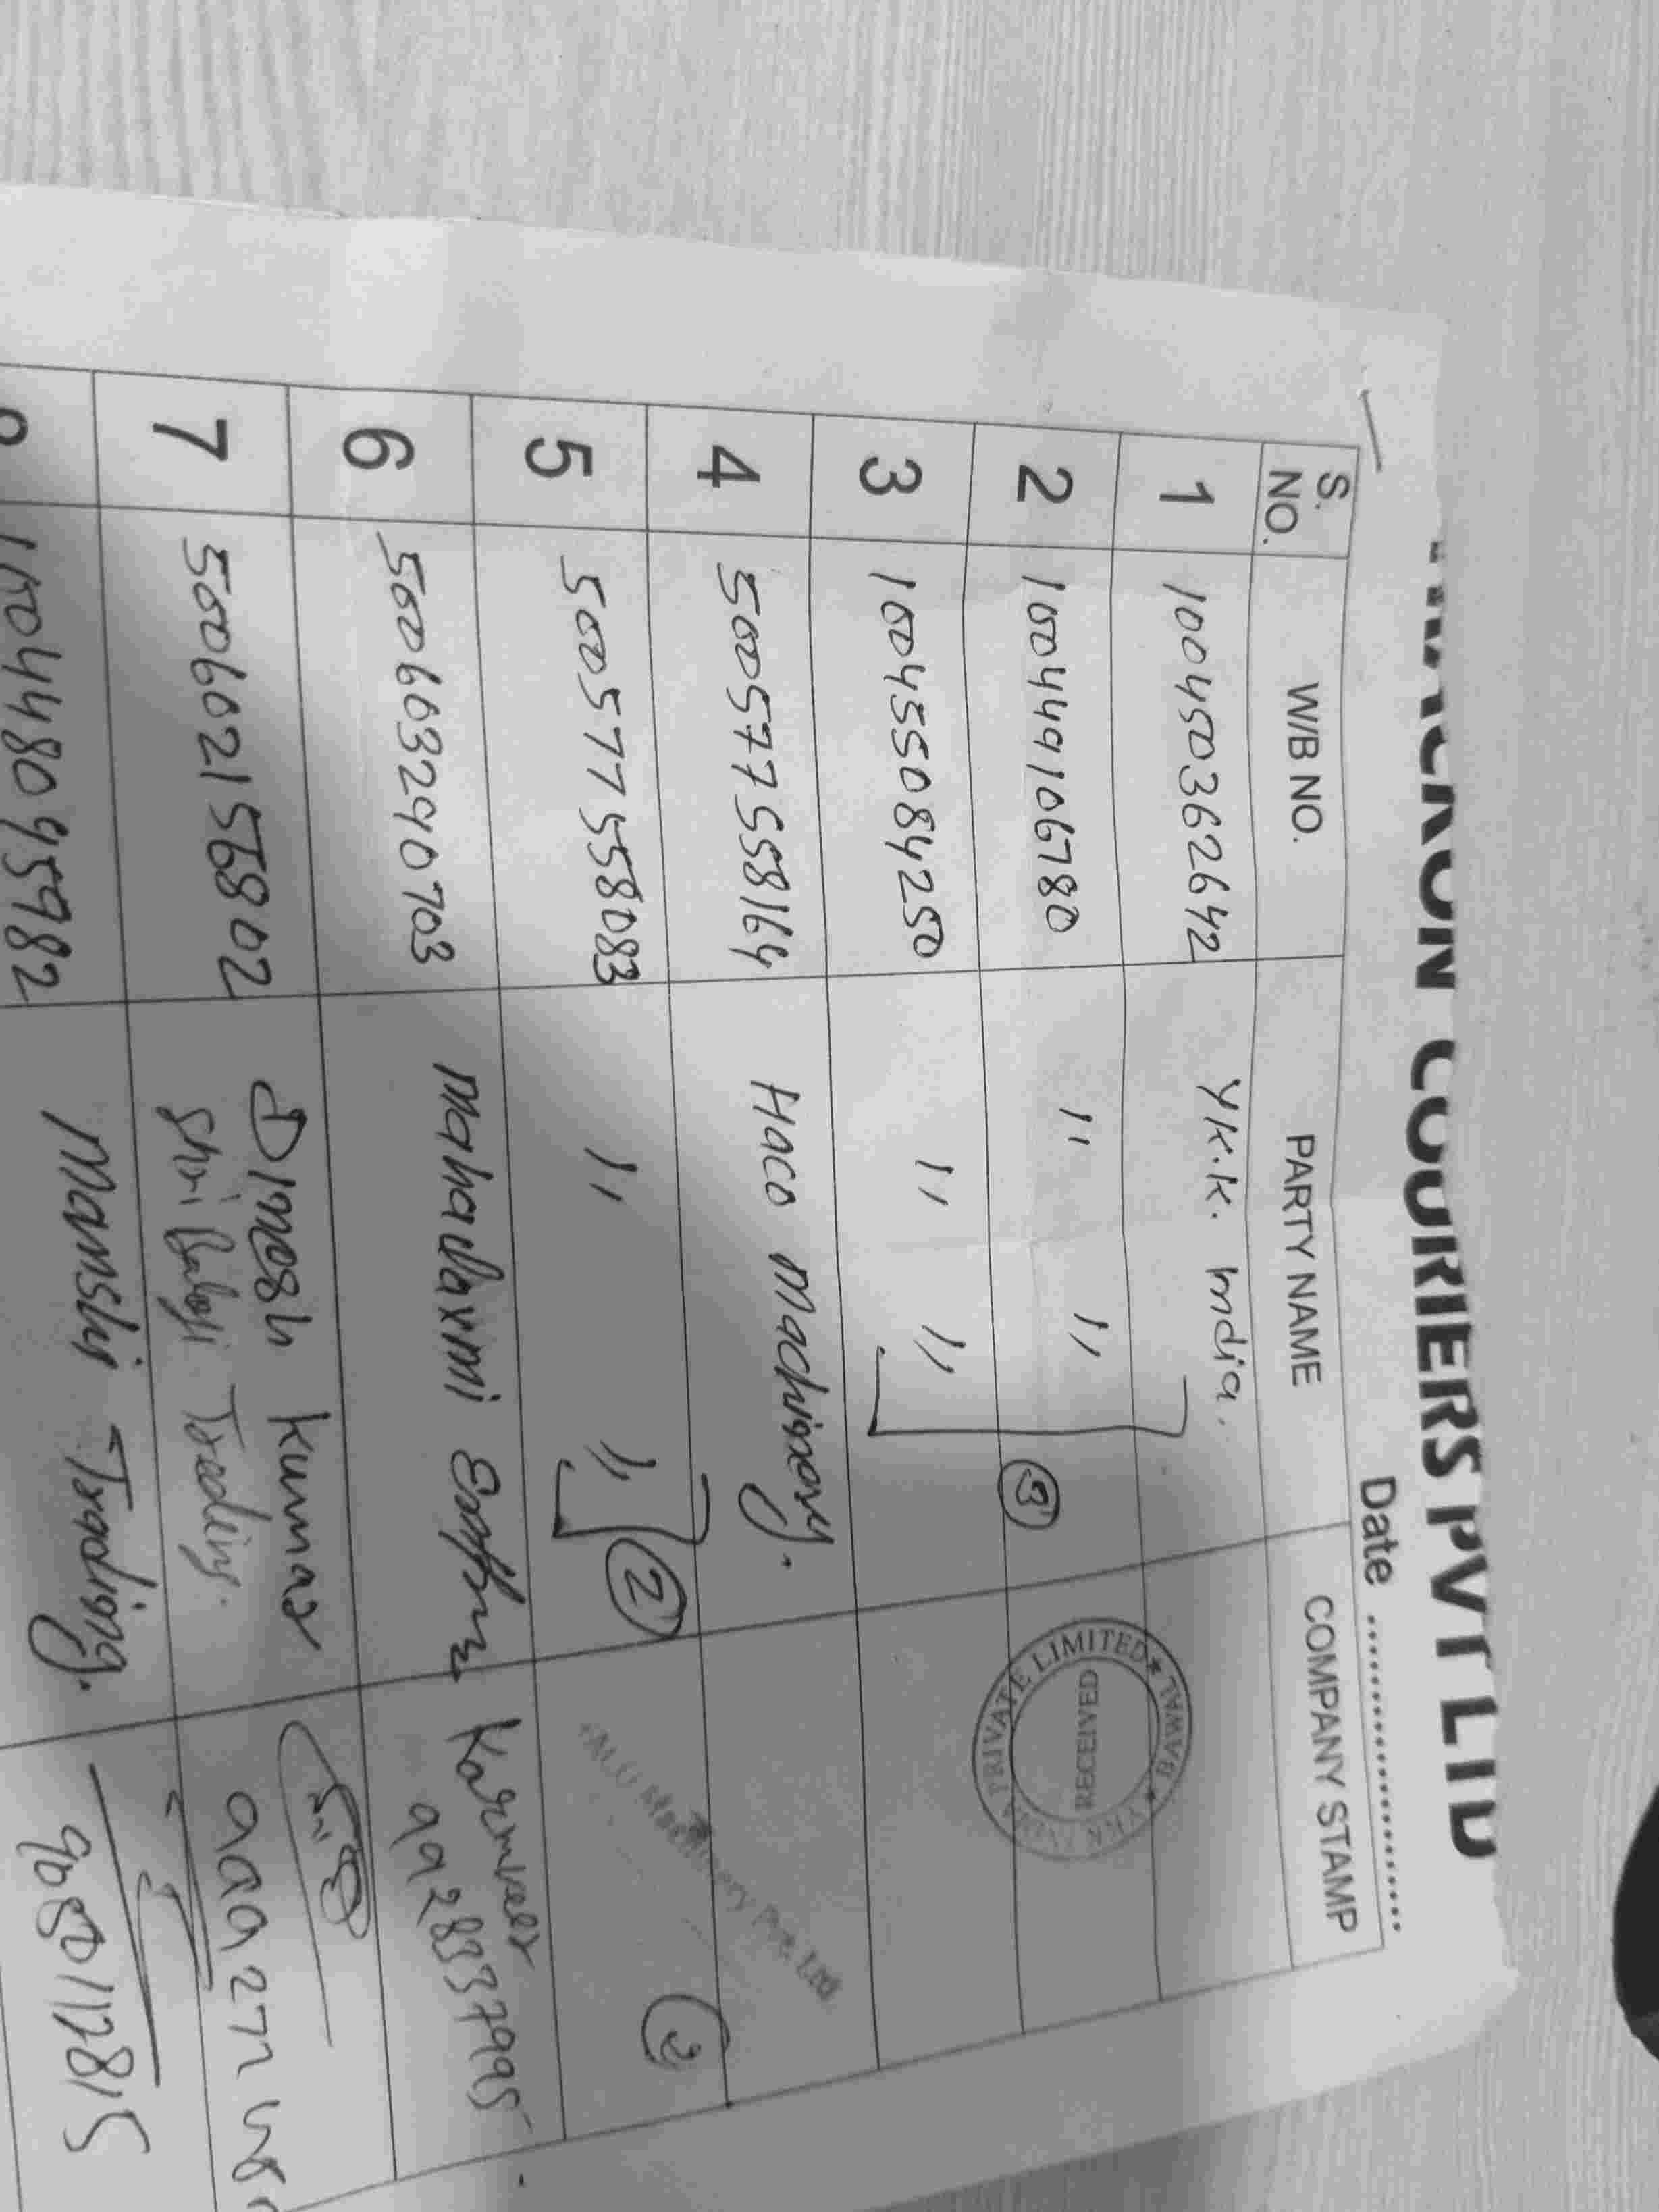 COURIERS PVT LTD
Date
S. NO. W/B NO. PARTY NAME COMPANY STAMP
1 100450362642 Y.K.K. India.
2 100449106780 " " 3
3 100455084250 " "
PRIVATE LIMITED ★ BAWAL ★
RECEIVED
4 500577558164 Haco Machinery.
5 500577558083 " " 2
Machinery Pvt. Ltd
2
6 500603290703 Mahalaxmi Karmveer
9928337995
7 500602156802 Dimesh Kumar
Shri Balaji Trading.
100448095982 Manshi Trading. 9680117815